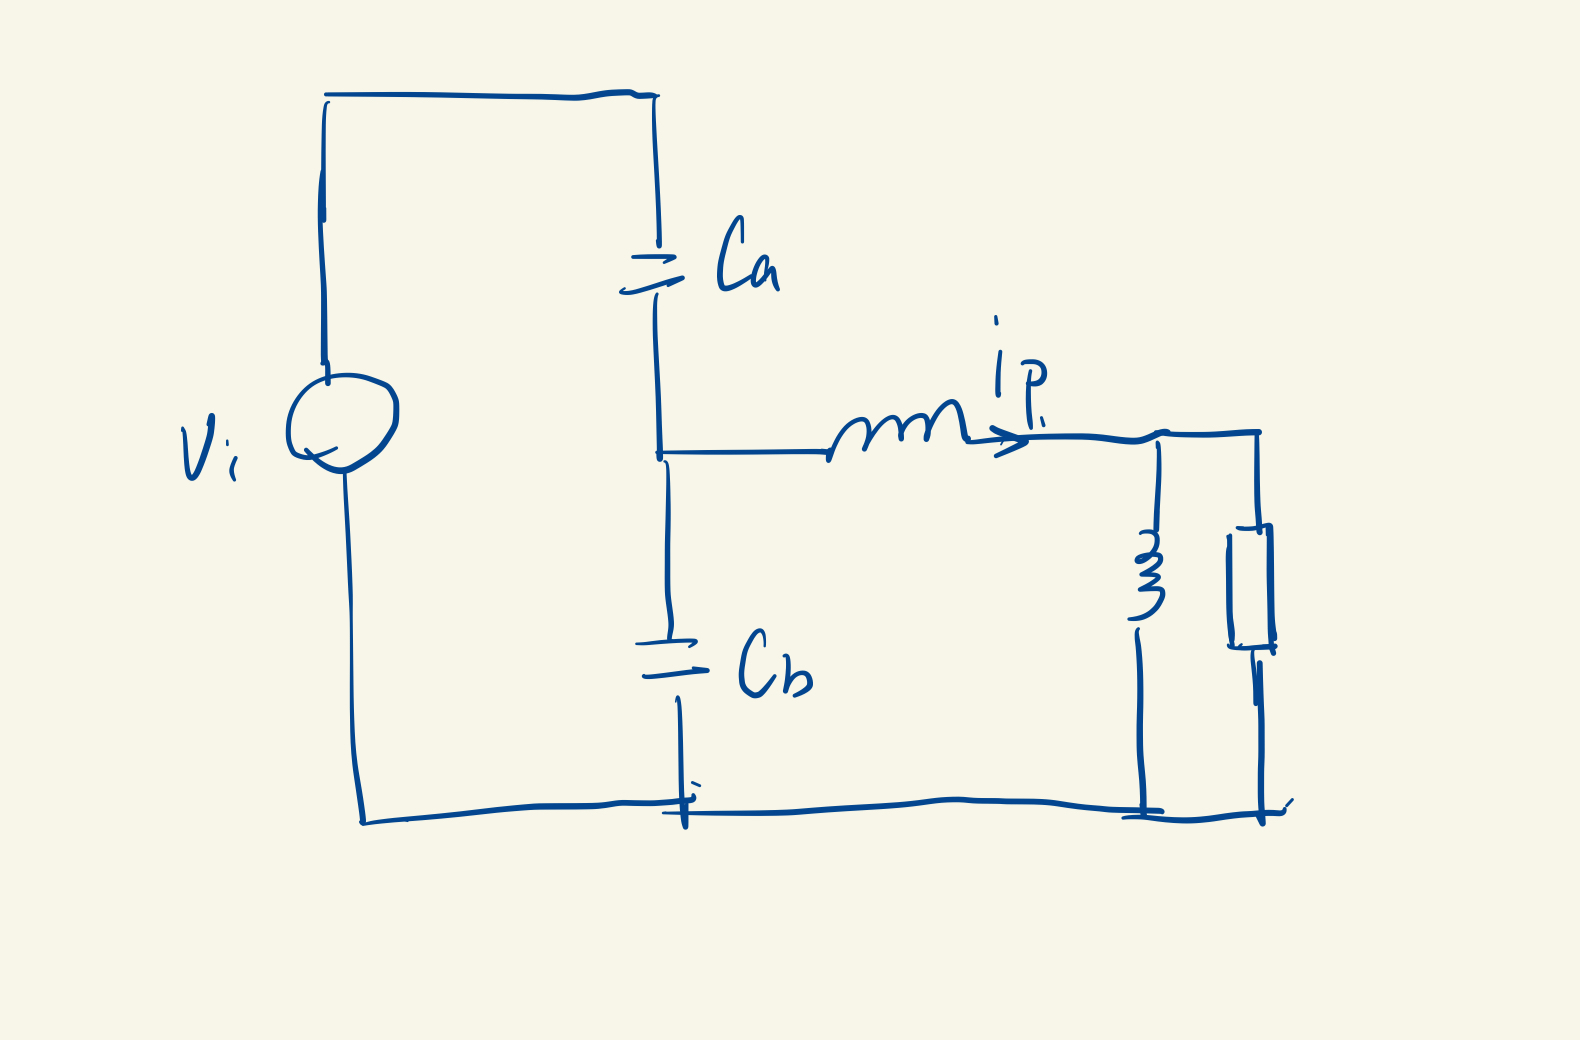 Ca
ip
Vi
Cb